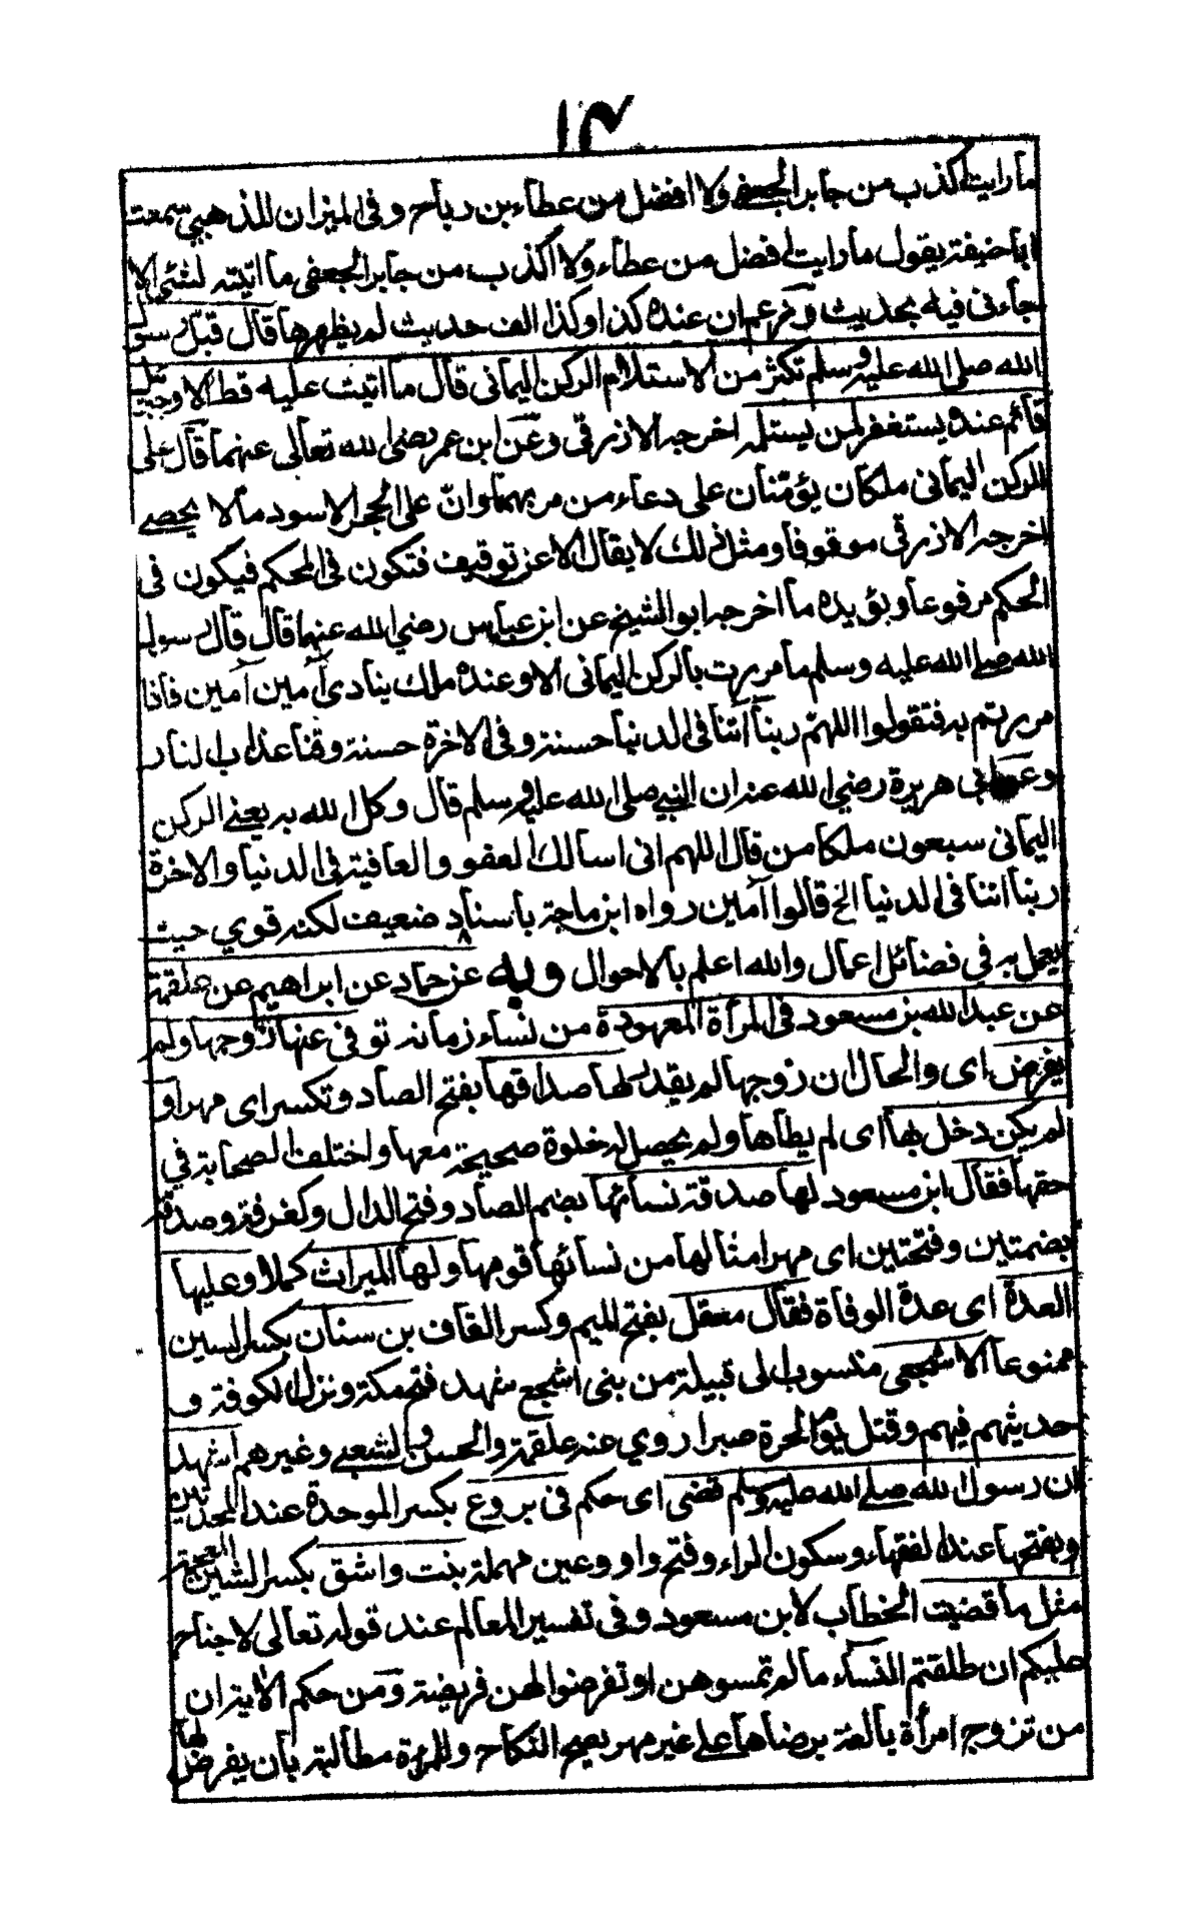 ١٣
ما رايت اكذب من جابر الجعفي ولا افضل من عطاء بن رباح وفى الميزان للذهبي سمعت
ابا حنيفة يقول ما رايت افضل من عطاء ولا اكذب من جابر الجعفى ما اتيته لشئ الا
جاءنى فيه بحديث وزعم ان عنده كذا وكذا الف حديث لم يظهرها قال قيل رسول
الله صلى الله عليه وسلم تكثر من الاستلام الركن اليمانى قال ما اتيت عليه قط الا وجبريل
قائم عنده يستغفر لمن يستلمه اخرجه الازرقى وعن ابن عمر رضى الله تعالى عنهما قال على
الركن اليمانى ملكان يؤمنان على دعاء من مر بهما وان على الحجر الاسود مالا يحصى
اخرجه الازرقى موقوفا ومثل ذلك لا يقال الا عن توقيف فتكون فى المحكم فيكون فى
الحكم مرفوعا ويؤيده ما اخرجه ابو الشيخ عن ابن عباس رضي الله عنهما قال قال رسول
الله صلى الله عليه وسلم ما مررت بالركن اليمانى الا وعنده ملك ينادى آمين آمين فاذا
مررتم به فتقولوا اللهم ربنا اتنا فى الدنيا حسنة وفى الاخرة حسنة وقنا عذاب النار
وعن ابى هريرة رضي الله عنه ان النبي صلى الله عليه وسلم قال وكل الله به يعنى الركن
اليمانى سبعون ملكا من قال اللهم انى اسالك العفو والعافية فى الدنيا والاخرة
ربنا اتنا فى الدنيا الخ قالوا آمين رواه ابن ماجة باسناد ضعيف لكنه قوي حيث
يعمل به في فضائل اعمال والله اعلم بالاحوال وبه عن حماد عن ابراهيم عن علقمة
عن عبد الله بن مسعود فى المرأة المعهودة من نساء زمانه توفى عنها زوجها ولم
يفرض اى والحال ان زوجها لم يقدر لها صداقها بفتح الصاد وتكسر اى مهرا و
لم يكن دخل بها اى لم يطأها ولم يحصل له خلوة صحيحة معها واختلف الصحابة في
حقها فقال ابن مسعود لها صدقة نسائها بضم الصاد وفتح الدال وكغرفة وصدقة
بضمتين وفتحتين اى مهر امثالها من نسائها قومها ولها الميراث كملا وعليها
العدة اى عدة الوفاة فقال معقل بفتح الميم وكسر القاف بن سنان بكسر السين
ممنوعا الاشجعى منسوب الى قبيلة من بنى اشجع شهد فتح مكة ونزل الكوفة و
حديثهم فيهم وقتل يوم الحرة صبرا روي عنه علقمة والحسن والشعبى وغيرهم اشهد
ان رسول الله صلى الله عليه وسلم قضى اى حكم فى بروع بكسر الموحدة عند المحدثين
وبفتحها عند الفقهاء وسكون الراء وفتح واو وعين مهملة بنت واشق بكسر الشين المعجمة
مثل ما قضيت الخطاب لابن مسعود وفى تفسير المعالم عند قوله تعالى لا جناح
عليكم ان طلقتم النساء ما لم تمسوهن او تفرضوا لهن فريضة ومن حكم الاية ان
من تزوج امرأة بالغة برضاها على غير مهر يصح النكاح وللمرءة مطالبته بان يفرض لها